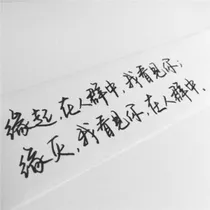 缘起,在人群中,我看见你;
缘灭,我看见你,在人群中.